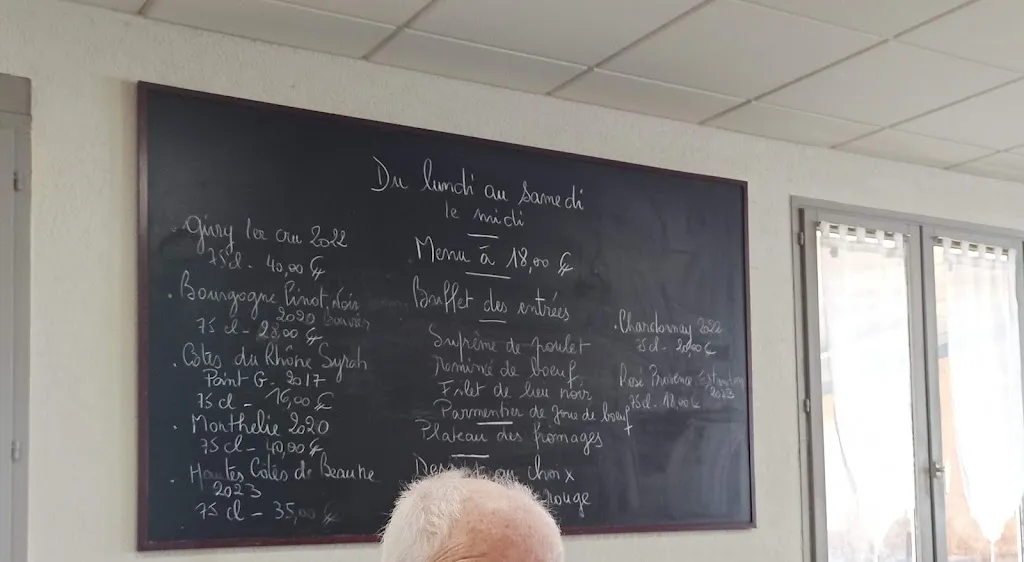 Du lundi au Samedi
le midi
Menu à 18,00 €
Buffet des entrées
Suprême de poulet
Emincé de boeuf
Filet de lieu noir
Parmentier de joue de boeuf
Plateau des fromages
Dessert au choix
rouge
. Givry 1er cru 2022
75cl - 40,00 €
. Bourgogne Pinot Noir
2020
75 cl - 28,00 €
. Côtes du Rhône Syrah
Point G - 2017
75 cl - 16,00 €
. Monthélie 2020
75 cl - 40,00 €
. Hautes Côtes de Beaune
2023
75 cl - 35,00 €
. Chardonnay 2022
75cl - 20,00 €
Rosé Provence Estandon
2023
75cl - 18,00 €